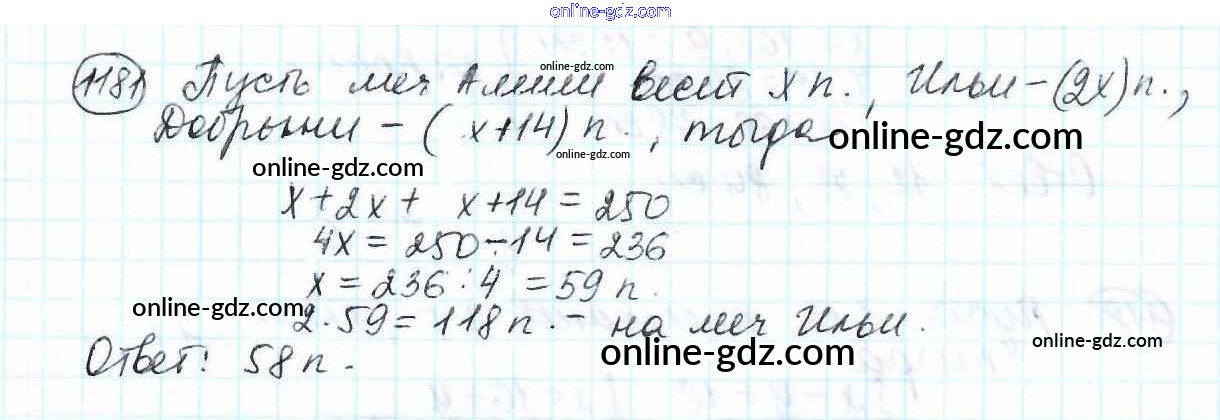 online-gdz.com
1181 Пусть меч Алеши весит x п., Ильи - (2x) п.,
online-gdz.com
Добрыни - (x+14) п., тогда
online-gdz.com
online-gdz.com
online-gdz.com
x+2x+ x+14 = 250
4x = 250-14 = 236
x = 236:4 = 59 п.
online-gdz.com
2·59 = 118 п. - на меч Ильи.
online-gdz.com
online-gdz.com
Ответ: 58 п.